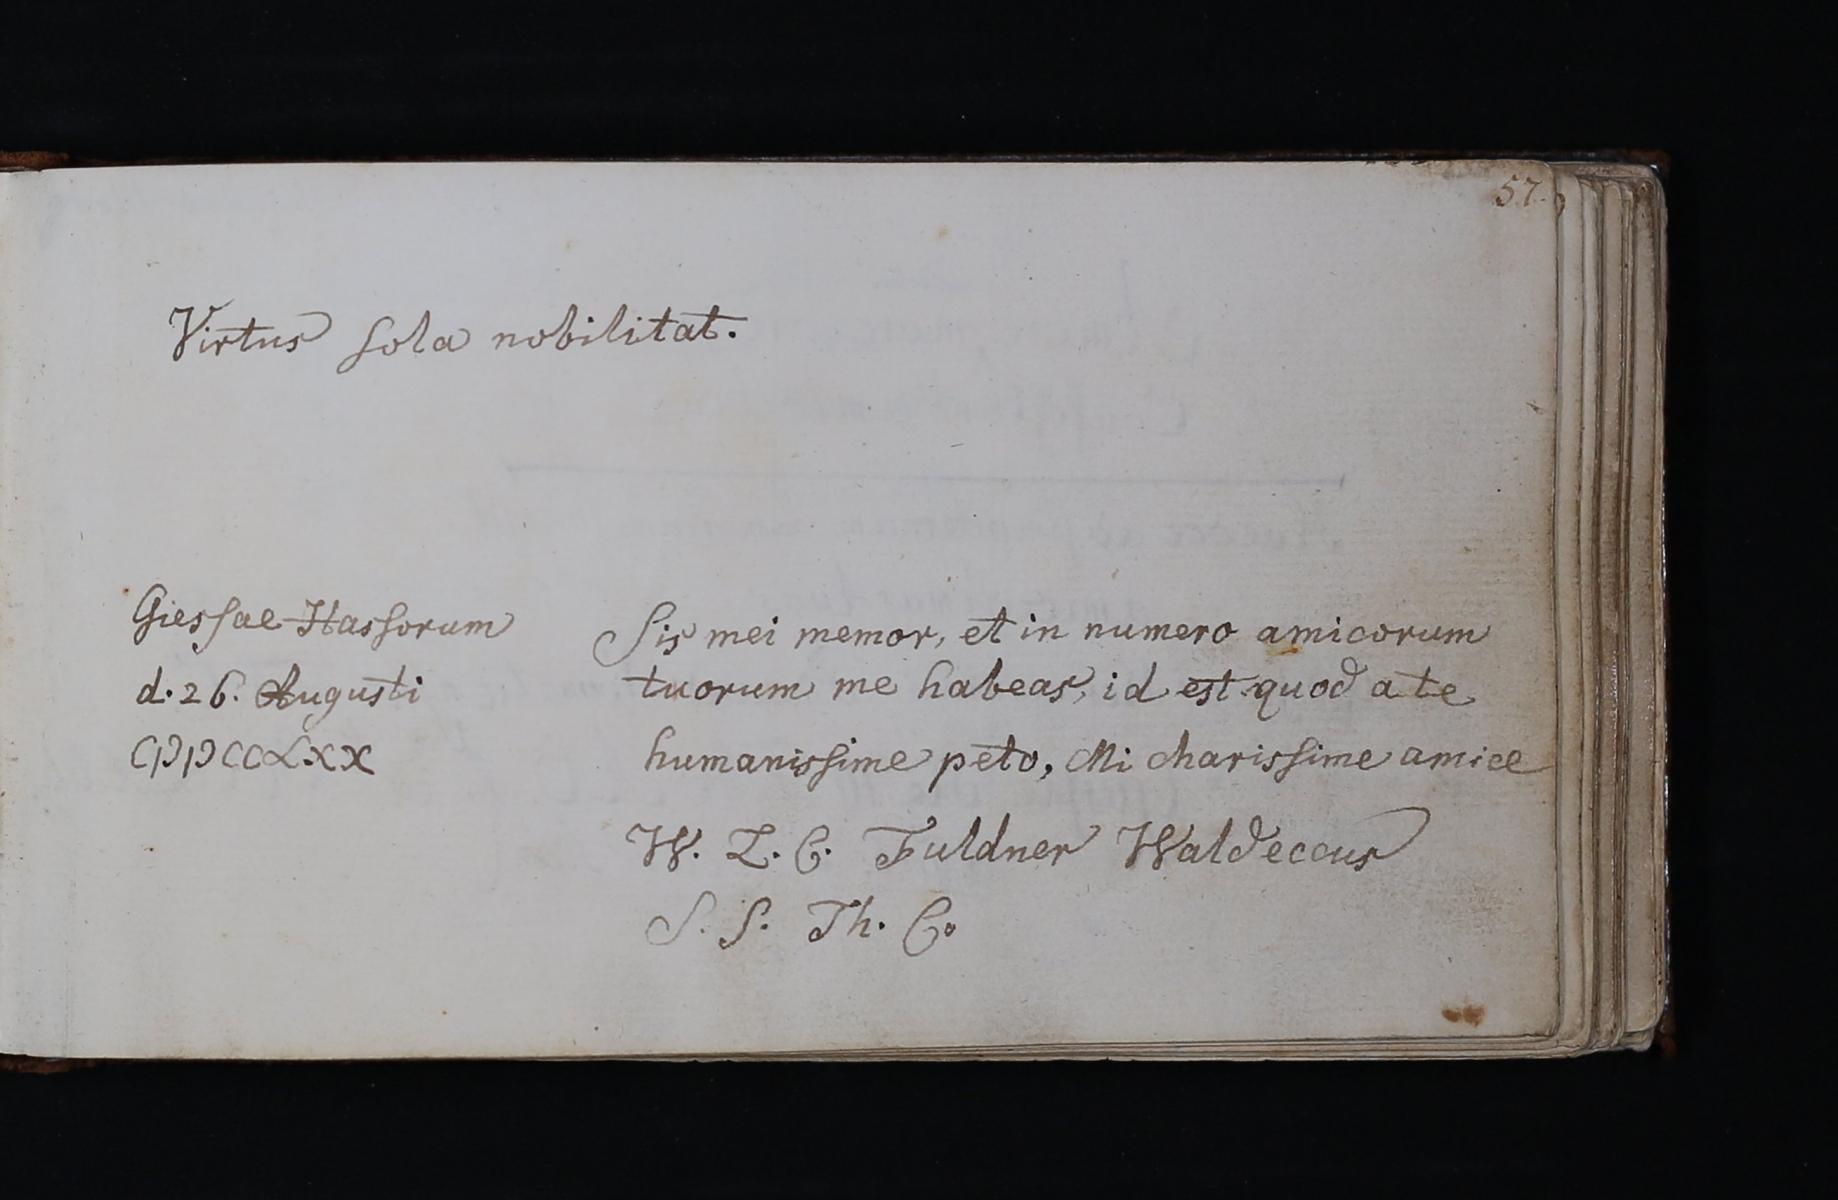 57.
Virtus sola nobilitat.
Giessae Hassorum
d. 26. Augusti
CIƆIƆCCLXX
Sis mei memor, et in numero amicorum
tuorum me habeas, id est quod a te
humanissime peto, Mi charissime amice
W. L. C. Fuldner Waldeccus
S. S. Th. C.